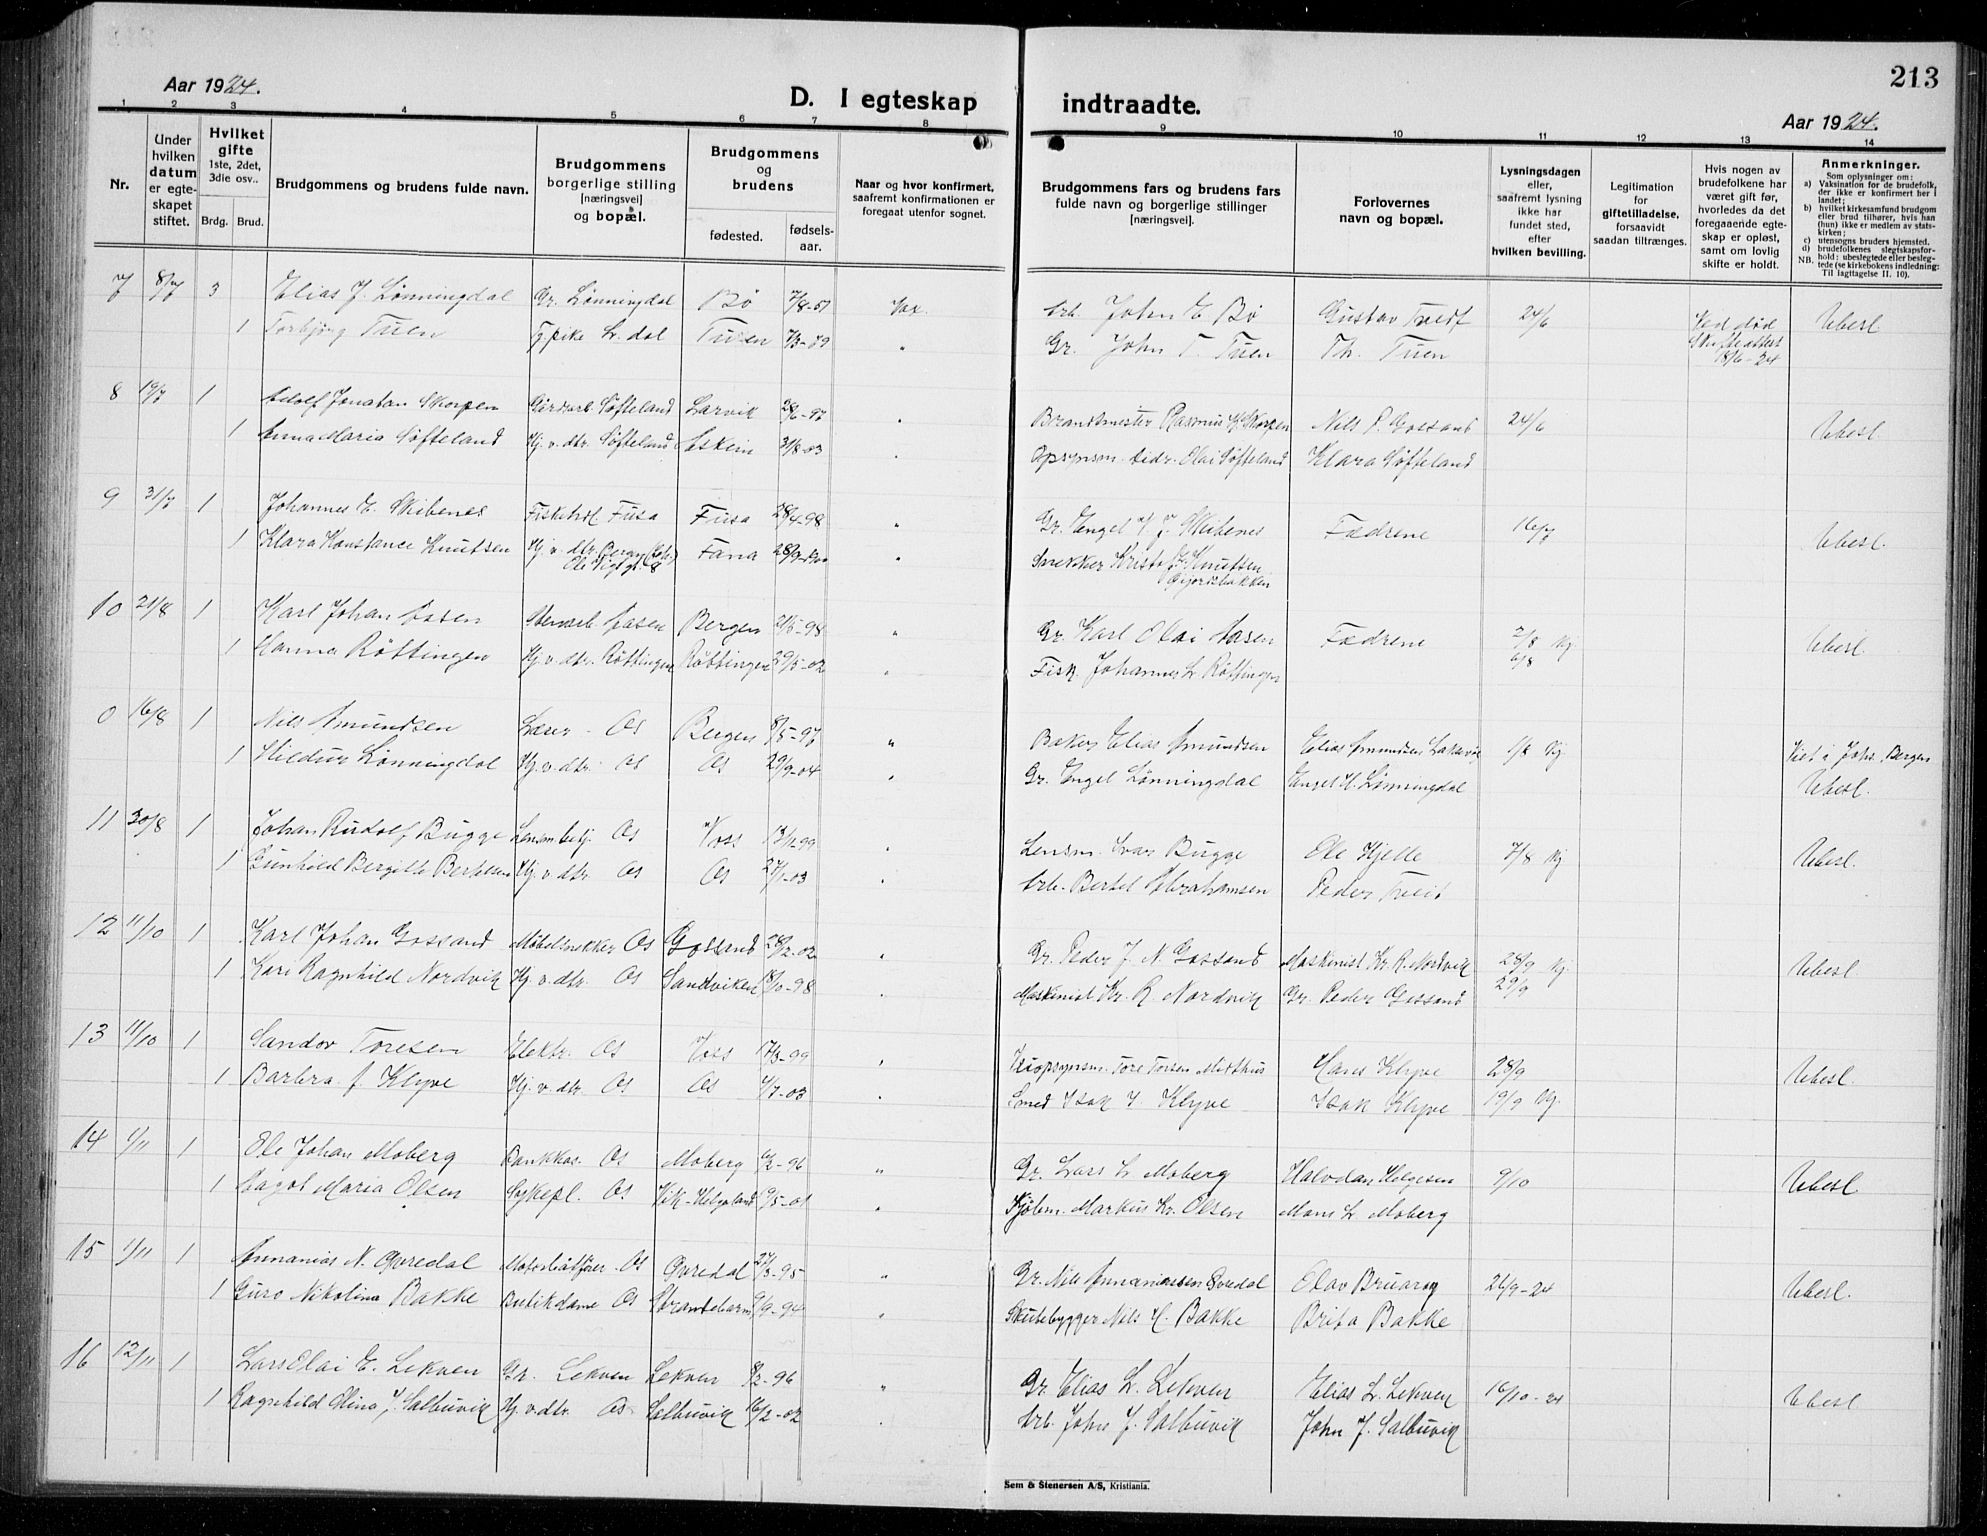 213
Aar 1924.
D. I egteskap indtraadte.
Aar 1924.
1 2 3 4 5 6 7 8 9 10 11 12 13 14
Nr.
Under hvilken datum er egteskapet stiftet.
Hvilket gifte 1ste, 2det, 3die osv..
Brdg. Brud.
Brudgommens og brudens fulde navn.
Brudgommens borgerlige stilling [næringsvei] og bopæl.
Brudgommens og brudens
fødested. fødselsaar.
Naar og hvor konfirmert, saafremt konfirmationen er foregaat utenfor sognet.
Brudgommens fars og brudens fars fulde navn og borgerlige stillinger [næringsvei].
Forlovernes navn og bopæl.
Lysningsdagen eller, saafremt lysning ikke har fundet sted, efter hvilken bevilling.
Legitimation for giftetilladelse, forsaavidt saadan tiltrænges.
Hvis nogen av brudefolkene har været gift før, hvorledes da det foregaaende egteskap er opløst, samt om lovlig skifte er holdt.
Anmerkninger.
Som oplysninger om:
a) Vaksination for de brudefolk, der ikke er konfirmert her i landet;
b) hvilket kirkesamfund brudgom eller brud tilhører, hvis han (hun) ikke er medlem av statskirken;
c) utensogns bruders hjemsted.
d) brudefolkenes slegtskapsforhold: ubeslegtede eller beslegtede (se kirkebokens indledning:
NB. Til lagttagelse II. 10).
7 8/7 3 Elias J. Lønningdal Gr. Lønningdal Bø 7/8-51 Vax. Arb. John E Bø Gustav Tveit 24/6 Ved død Ubesl.
1 Torbjørg Tuen Tj.pike L.dal Tuen 7/3-89 " Gr. John T. Tuen Th. Tuen Skifteattest 18/6-24
8 19/7 1 Adolf Jonatan Skorpen Gårdarb. Søfteland Larvik 28/6-97 " Brandmester Rasmus Skorpen Nils P. Gossand 24/6 Ubesl.
1 Anna Maria Søfteland Hj.v.dtr. Søfteland Askim 31/8-03 " Opsynsm. Didr. Olai Søfteland Klara Søfteland
9 31/7 1 Johannes E. Skibenes Fiskehdl Fusa Fusa 28/4-98 " Gr. Engel J. Skibenes Fædrene 16/7 Ubesl.
1 Klara Konstance Knutsen Hj.v.dtr. Bergen Fana " Snekker Knutsen
10 21/8 1 Karl Johan Aasen Aasen Bergen 21/5-98 " Gr. Karl Olai Aasen Fædrene 2/8 Kj. Ubesl.
1 Hanna Røttingen Hj.v.dtr. Røttingen Røttingen 29/5-02 " Fisk. Johannes L Røttingen 6/8
0 16/8 1 Nils Amundsen Lærer - Os Bergen 8/5-97 " Baker Elias Amundsen Elias Amundsen Laksevåg 1/8 Kj. Viet i Johs., Bergen
1 Hildur Lønningdal Hj.v.dtr. Os Os 29/9-04 " Gr. Engel Lønningdal Engel H. Lønningdal Ubesl.
11 30/8 1 Johan Rudolf Bugge Lensm.betj. Os Voss 13/12 99 " Lensm. Ivar Bugge Ole Hjelle 7/8 Kj Ubesl.
1 Gunhild Bergitte Bertelsen Hj.v.dtr. Os Os 27/1-03 " Arb. Bertel Abrahamsen Peder Tveit
12 11/10 1 Karl Johan Gossand Møbelsnekker Os Gossand 28/2-02 " Gr. Peder J. N. Gossand Maskinist Kr. R. Nordvik 28/9 Kj. Ubesl.
1 Kari Ragnhild Nordvik Hj.v.dtr. Os Sandviken 18/10-98 " Maskinist Kr. R. Nordvik Gr. Peder Gossand 29/9
13 11/10 1 Sandov Toresen Elektr. Os Voss 17/3-99 " Tore Toresen Midthus Hans Klyve 28/9 Ubesl.
1 Barbra J. Klyve Hj.v.dtr. Os Os 4/7-03 " Smed Isak I Klyve Isak Klyve 19/9 Kj.
14 1/11 1 Ole Johan Moberg Bankkas. Os Moberg 6/2-96 " Gr. Lars L. Moberg Halvdan Helgesen 9/10 Ubesl.
1 Dagot Maria Olsen Sykepl. Os Vik-Helgeland 19/5-01 " Kjøbm. Markus Kr. Olsen Mons L Moberg
15 1/11 1 Annanias N. Øvredal Motorbåtfører Os Øvredal 27/3-95 " Gr. Nils Annaniassen Øvredal Olav Bruarøy 26/9-24 Ubesl.
1 Guro Nikolina Bakke Butikdame Os Strandebarm 9/9-94 " Skutebygger Nils H. Bakke Brita Bakke
16 12/11 1 Lars Olai E. Lekven Gr. Lekven Lekven 8/2-96 " Gr. Elias L. Lekven Elias L. Lekven 16/10-24 Ubesl
1 Ragnhild Olina J. Salbuvik Hj.v.dtr. Os Salbuvik 16/2-02 " Arb. John J. Salbuvik John J. Salbuvik
Sem & Stenersen A/S, Kristiania.